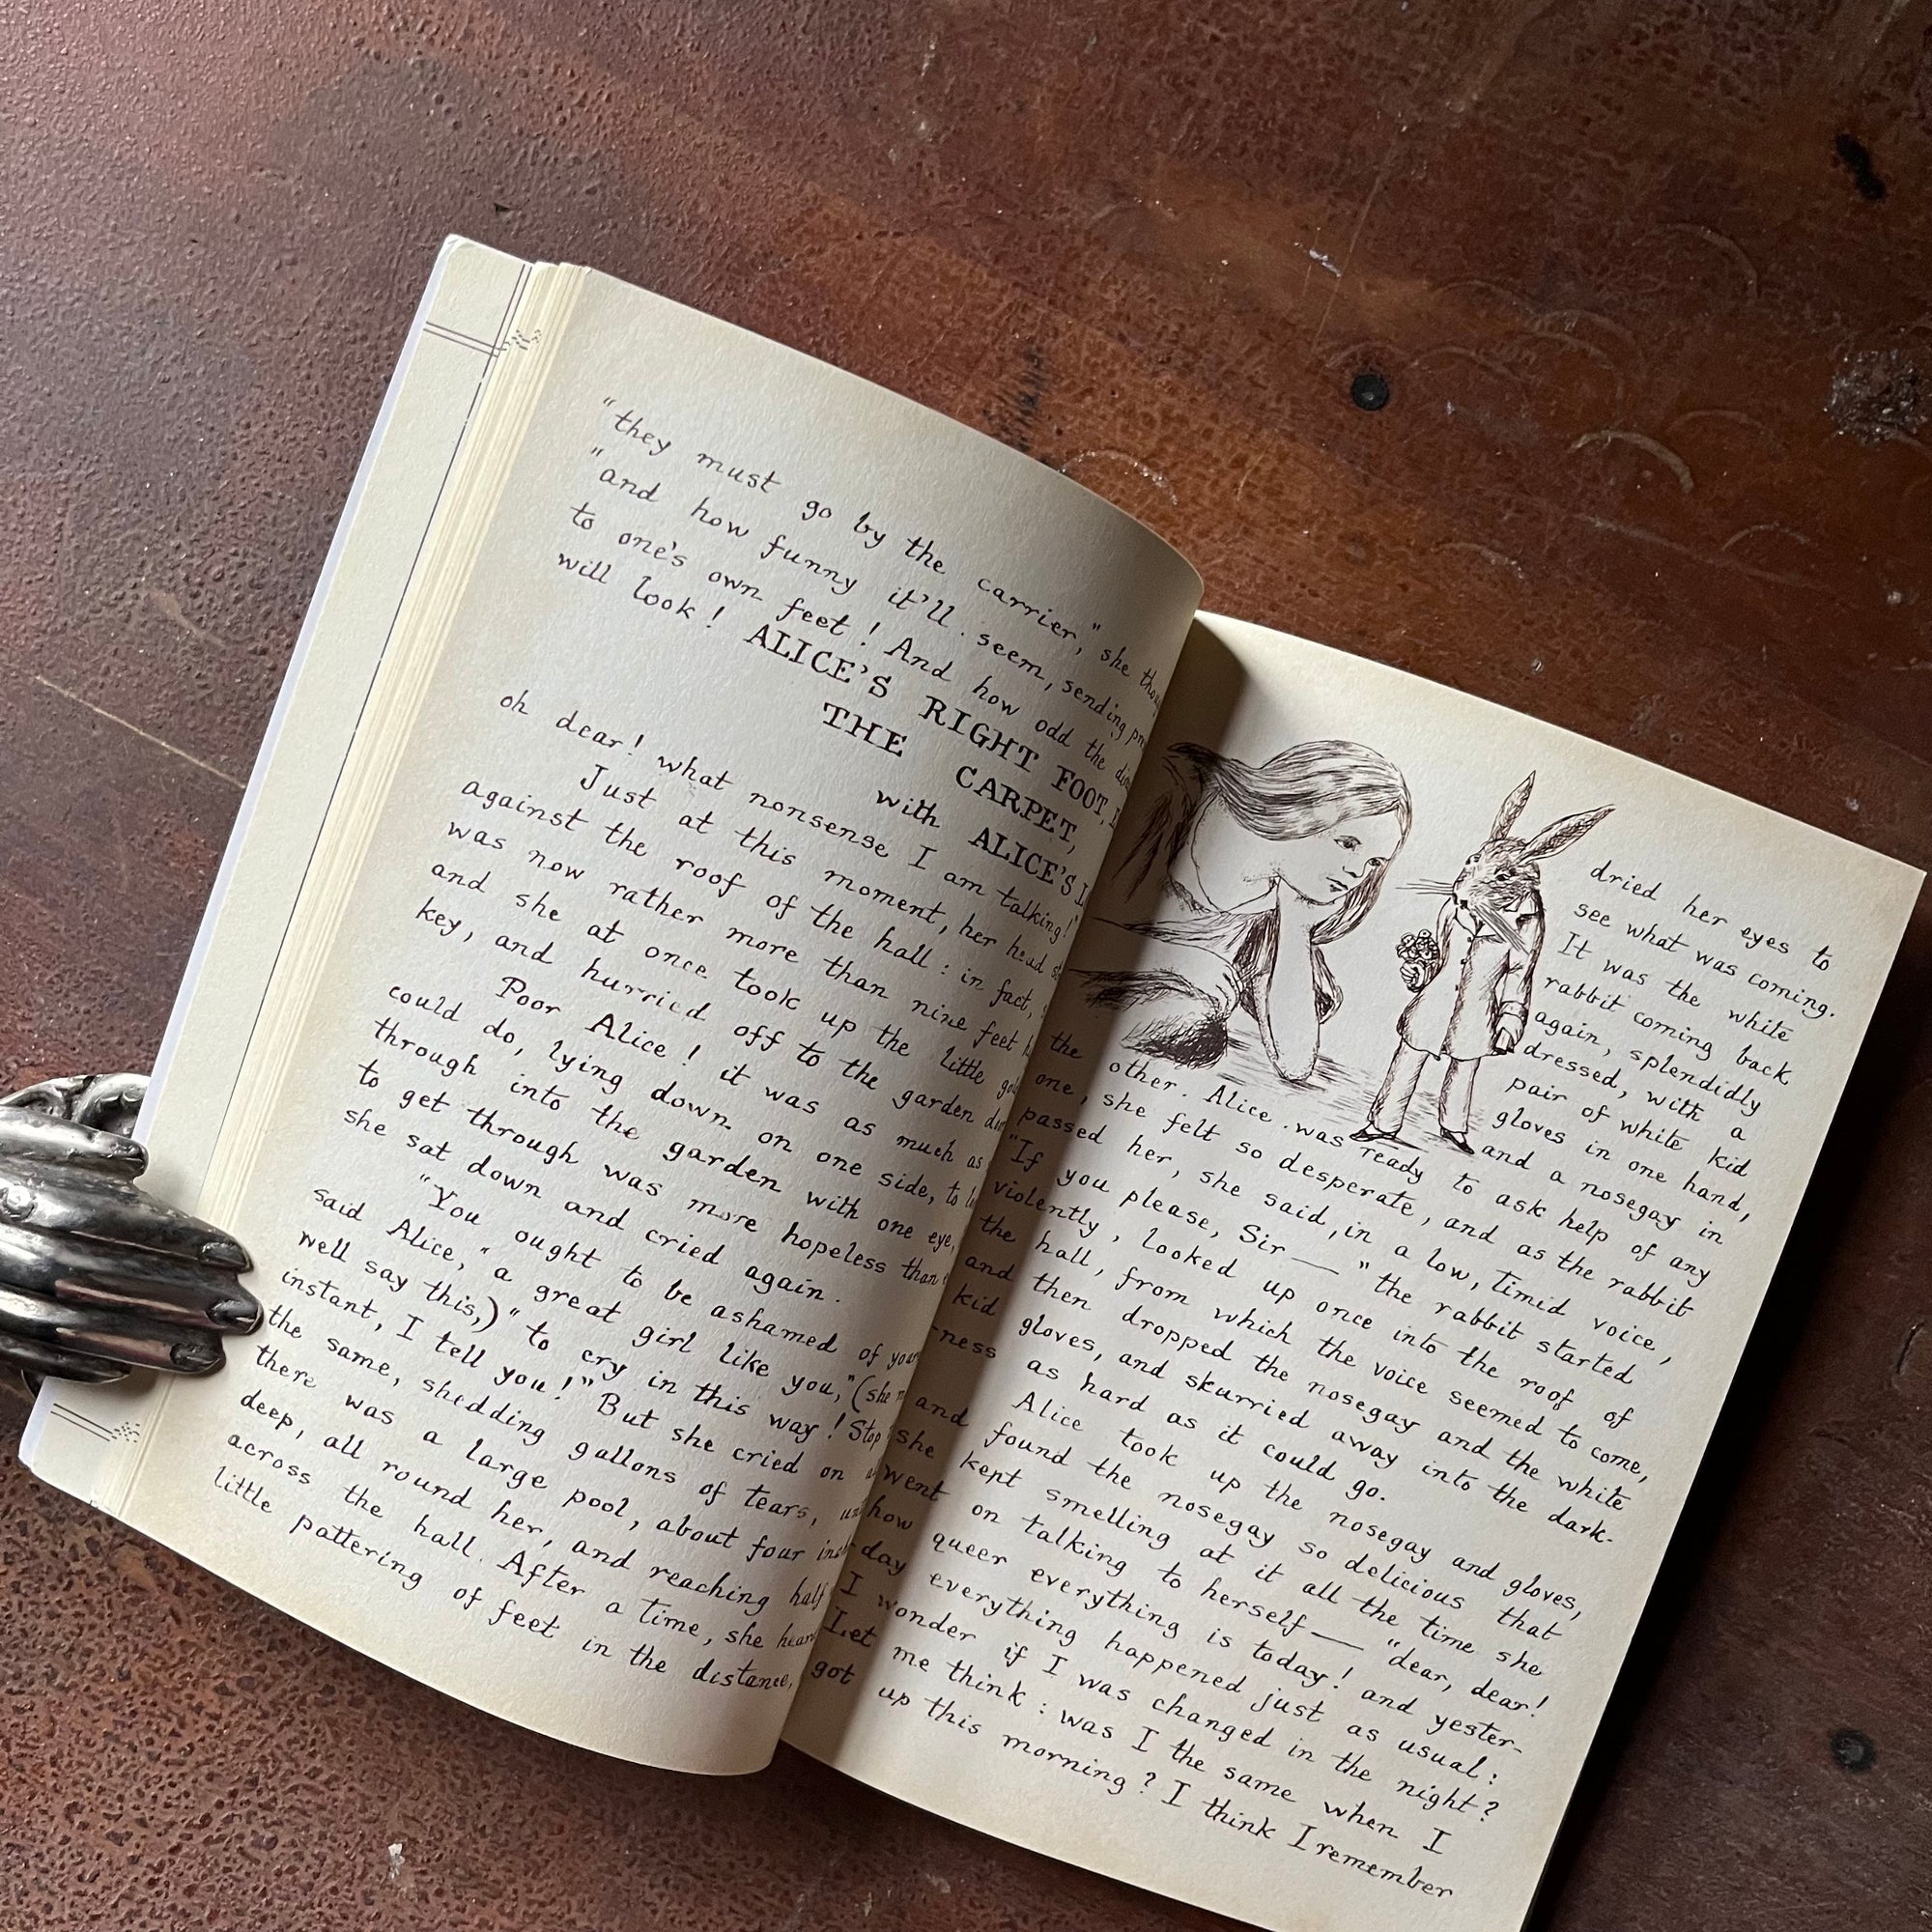 "they must go by the carrier," she
"and how funny it'll seem, sending
to one's own feet! And how odd the
will look! ALICE'S RIGHT FOOT,
THE CARPET,
with ALICE'S
oh dear! what nonsense I am talking!"
Just at this moment, her head
against the roof of the hall: in fact,
was now rather more than nine feet
and she at once took up the little
key, and hurried off to the garden
Poor Alice! it was as much as
could do, lying down on one side, to
through into the garden with one eye,
to get through was more hopeless than
she sat down and cried again.
"You ought to be ashamed of
said Alice, "a great girl like you," (she
well say this,) "to cry in this way! Stop
instant, I tell you!" But she cried on
the same, shedding gallons of tears,
there was a large pool, about four
deep, all round her, and reaching half
across the hall. After a time, she
little pattering of feet in the distance,
dried her eyes to
see what was coming.
It was the white
rabbit coming back
again, splendidly
dressed, with a
pair of white kid
gloves in one hand,
and a nosegay in
the other. Alice was ready to ask help of any
one, she felt so desperate, and as the rabbit
passed her, she said, in a low, timid voice,
"If you please, Sir—" the rabbit started
violently, looked up once into the roof of
the hall, from which the voice seemed to come,
and then dropped the nosegay and the white
kid gloves, and skurried away into the dark-
-ness as hard as it could go.
Alice took up the nosegay and gloves,
and found the nosegay so delicious that
she kept smelling at it all the time she
went on talking to herself— "dear, dear!
how queer everything is today! and yester-
-day everything happened just as usual:
I wonder if I was changed in the night?
Let me think: was I the same when I
got up this morning? I think I remember